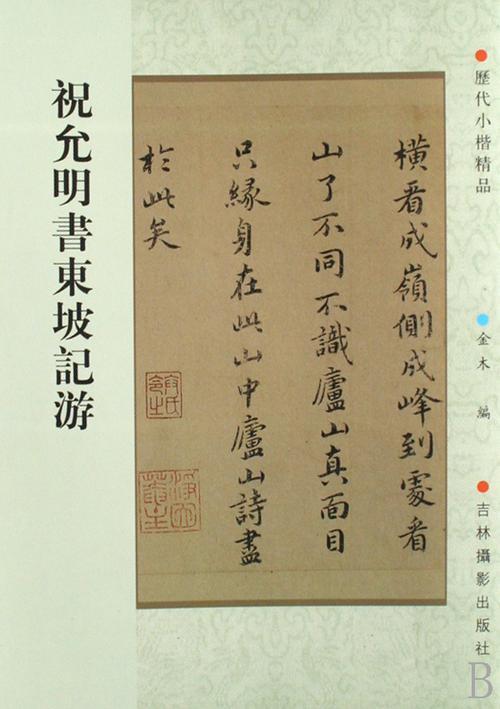 歷代小楷精品
金木 編
吉林攝影出版社
祝允明書東坡記游
橫看成嶺側成峰到處看
山了不同不識廬山真面目
只緣身在此山中廬山詩盡
於此矣
B